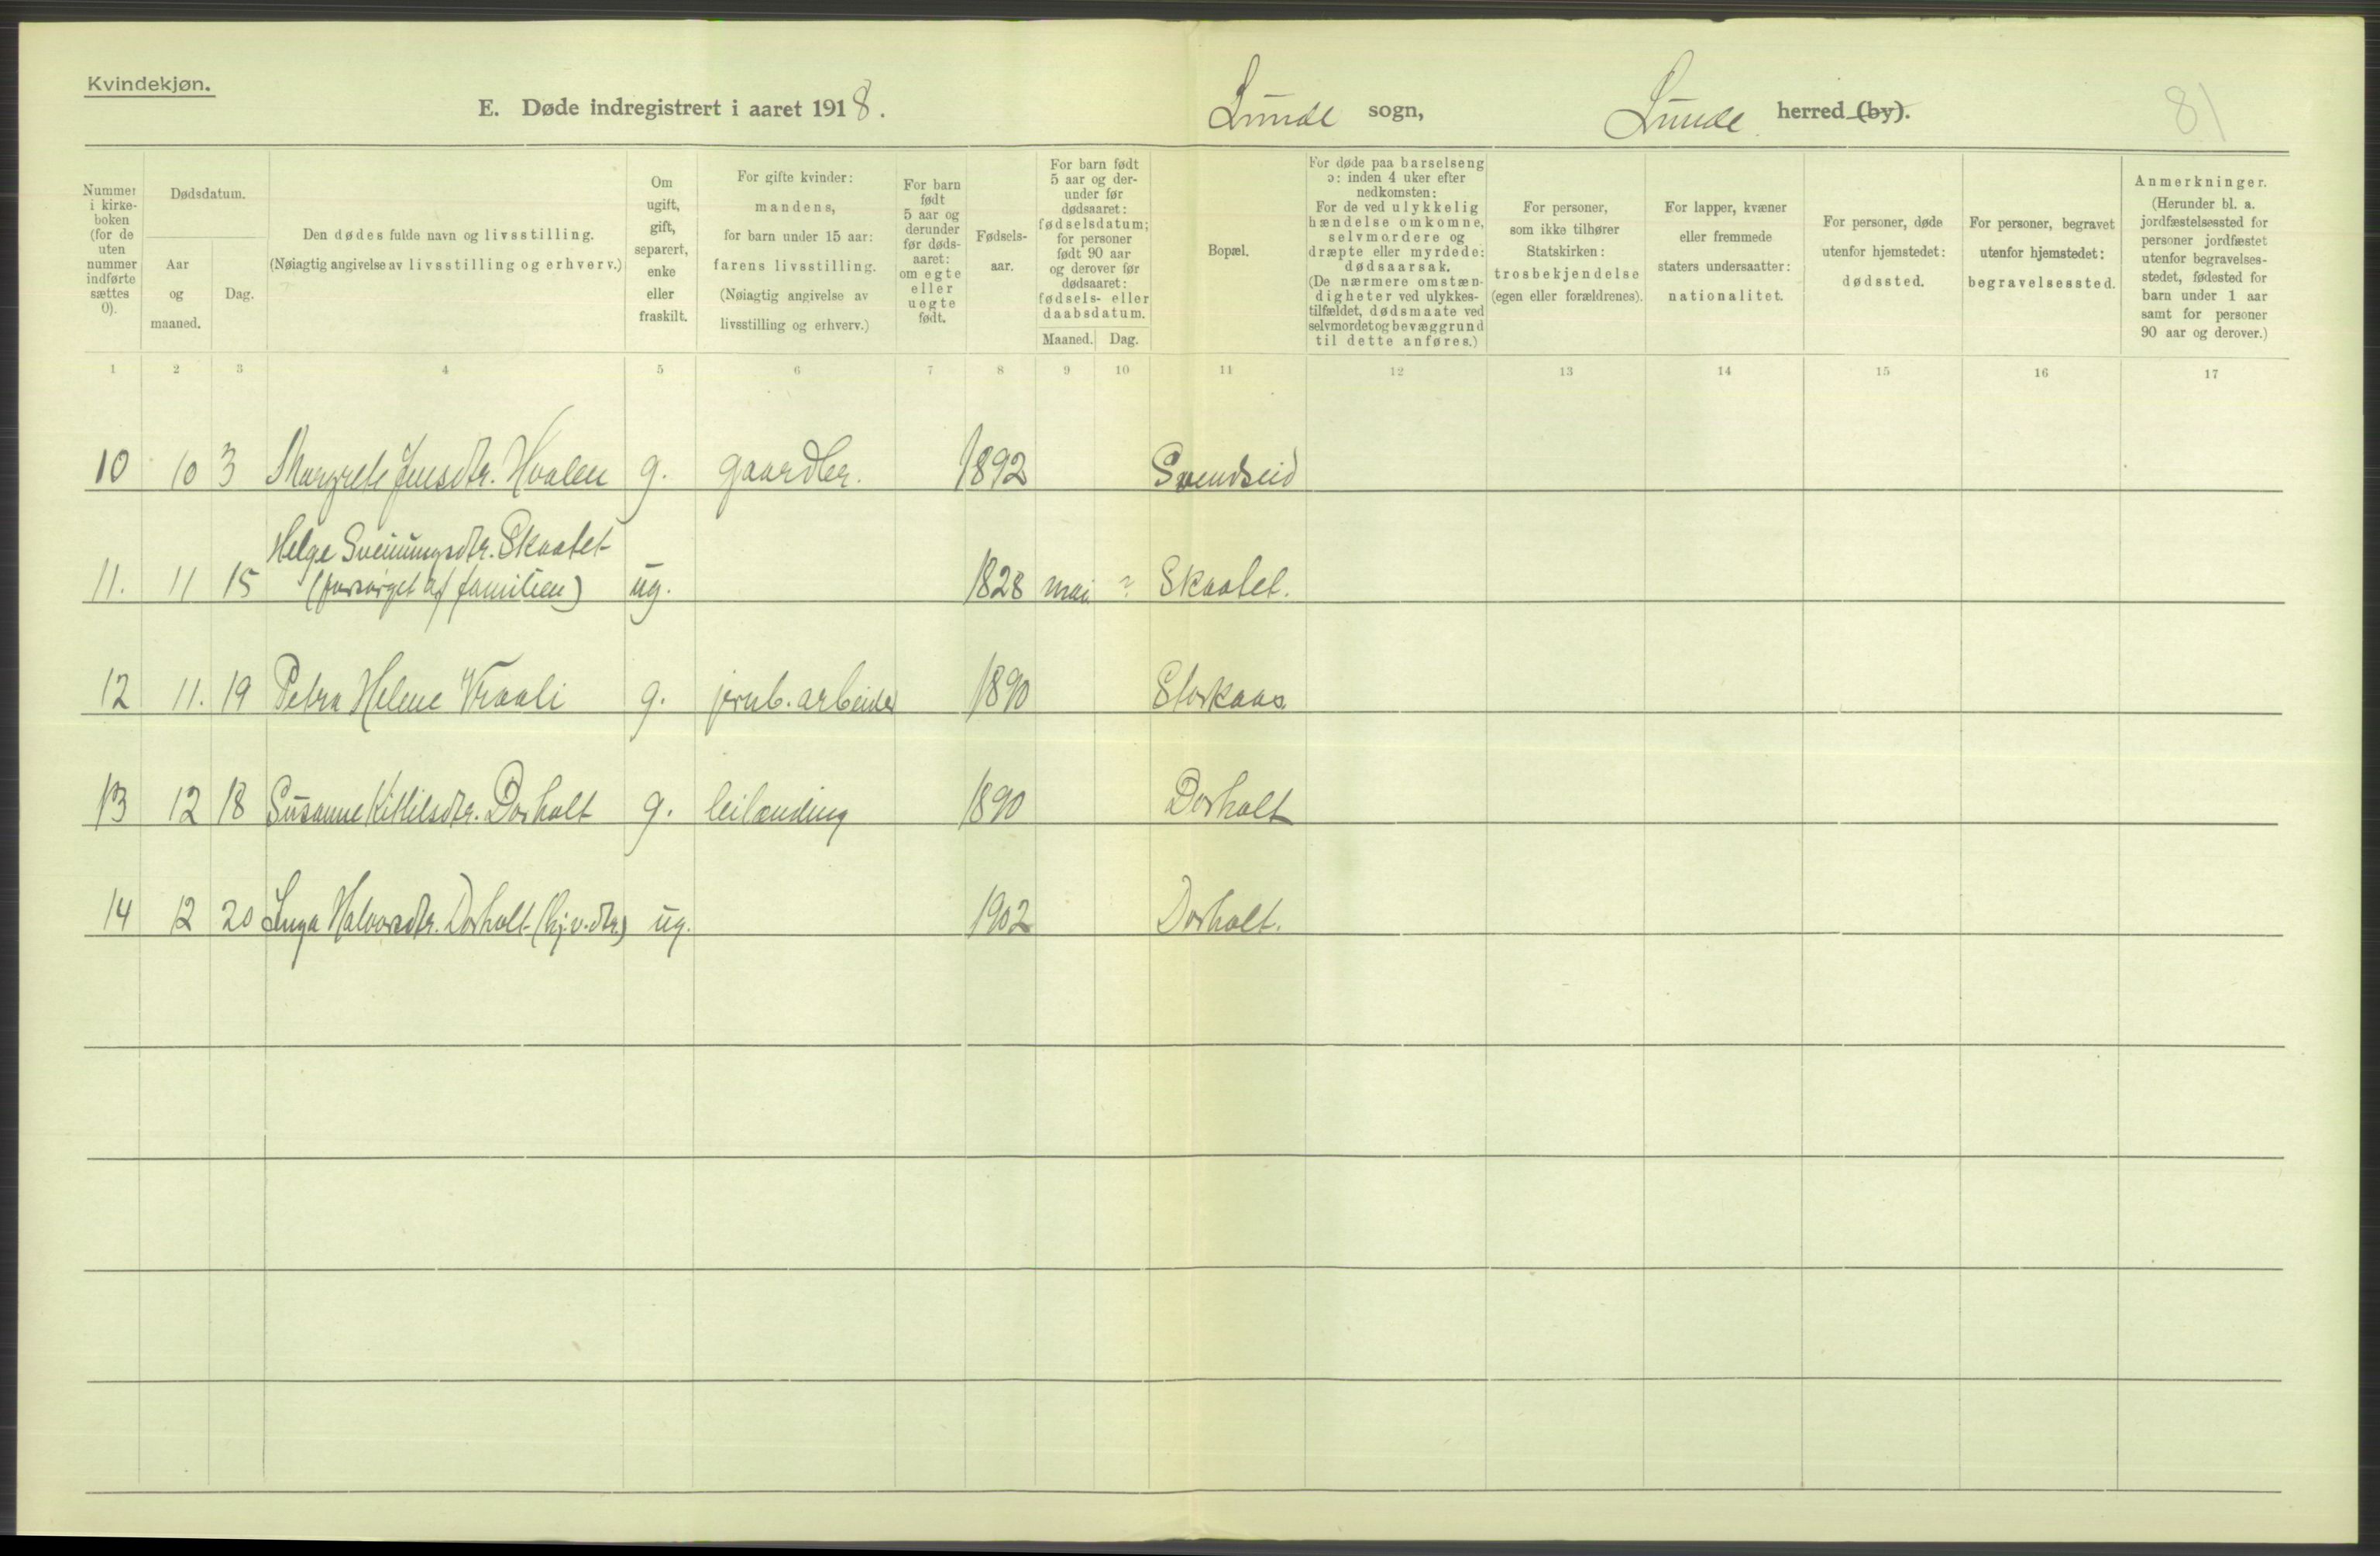 Kvindekjøn.
E. Døde indregistrert i aaret 1918.
Lunde sogn,
Lunde herred (by).
81
Nummer i kirke-boken (for de uten nummer indførte sættes 0).
Dødsdatum.
Aar og maaned.
Dag.
Den dødes fulde navn og livsstilling.
(Nøiagtig angivelse av livsstilling og erhverv.)
Om ugift, gift, separert, enke eller fraskilt.
For gifte kvinder: mandens, for barn under 15 aar: farens livsstilling. (Nøiagtig angivelse av livsstilling og erhverv.)
For barn født 5 aar og derunder før døds-aaret: om egte eller uegte født.
Fødsels-aar.
For barn født 5 aar og der-under før dødsaaret: fødselsdatum; for personer født 90 aar og derover før dødsaaret: fødsels- eller daabsdatum.
Maaned. Dag.
Bopæl.
For døde paa barselseng ɔ: inden 4 uker efter nedkomsten: For de ved ulykkelig hændelse omkomne, selvmordere og dræpte eller myrdede: dødsaarsak. (De nærmere omstæn-digheter ved ulykkes-tilfældet, dødsmaate ved selvmordet og bevæggrund til dette anføres.)
For personer, som ikke tilhører Statskirken: trosbekjendelse (egen eller forældrenes).
For lapper, kvæner eller fremmede staters undersaatter: nationalitet.
For personer, døde utenfor hjemstedet: dødssted.
For personer, begravet utenfor hjemstedet: begravelsessted.
Anmerkninger. (Herunder bl. a. jordfæstelsessted for personer jordfæstet utenfor begravelses-stedet, fødested for barn under 1 aar samt for personer 90 aar og derover.)
1 2 3 4 5 6 7 8 9 10 11 12 13 14 15 16 17
10 10 3 Margrete Jensdtr. Hvalen g. gaardbr. 1892 Svendseid
Helge Sveinungsdtr. Skaatet
11. 11 15 (forsørget af familien) ug. 1828 mai ? Skaatet.
12 11. 19 Petra Helene Vraali g. jernb. arbeider 1890 Storkaas
13 12 18 Susanne Kittilsdtr. Dorholt g. leilænding 1890 Dorholt
14 12 20 Inga Halvorsdtr. Dorholt (hj.v. dtr.) ug. 1902 Dorholt.